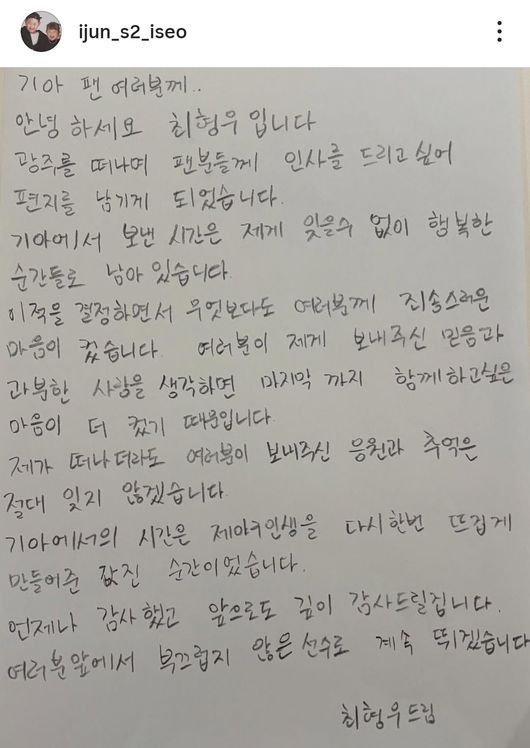 ijun_s2_iseo
기아 팬 여러분께..
안녕 하세요 최형우 입니다
광주를 떠나며 팬분들께 인사를 드리고 싶어
편지를 남기게 되었습니다.
기아에서 보낸 시간은 제게 잊을수 없이 행복한
순간들로 남아 있습니다.
이적을 결정하면서 무엇보다도 여러분께 죄송스러운
마음이 컸습니다. 여러분이 제게 보내주신 믿음과
과분한 사랑을 생각하면 마지막 까지 함께하고싶은
마음이 더 컸기 때문입니다.
제가 떠나더라도 여러분이 보내주신 응원과 추억은
절대 잊지 않겠습니다.
기아에서의 시간은 제야구인생을 다시한번 뜨겁게
만들어준 값진 순간이었습니다.
언제나 감사했고 앞으로도 깊이 감사드릴겁니다.
여러분앞에서 부끄럽지 않은 선수로 계속 뛰겠습니다
최형우드림